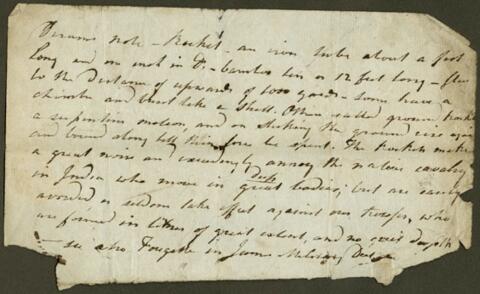 Dirom's note - Rocket - an iron tube about a foot
long and an inch in D. - bamboo ten or 12 feet long - flies
to the Distance of upwards of 1000 yards - some have a
chamber and burst like a Shell. Others called ground rockets
a serpentine motion, and on striking the ground rise again
and bound along till their force be spent. The rockets make
a great noise and exceedingly annoy the native cavalry
in India who move in great bodies; but are easily
avoided or seldom take effect against our troops, who
are formed in lines of great extent, and no great depth
- see also in James Military Dict